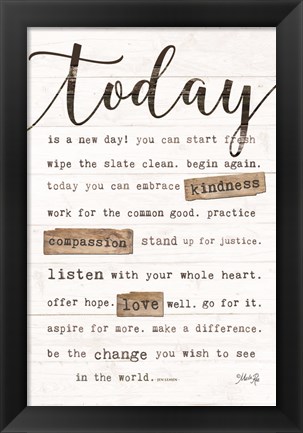 today
is a new day! you can start fresh
wipe the slate clean. begin again.
today you can embrace kindness
work for the common good. practice
compassion stand up for justice.
listen with your whole heart.
offer hope. love well. go for it.
aspire for more. make a difference.
be the change you wish to see
in the world.